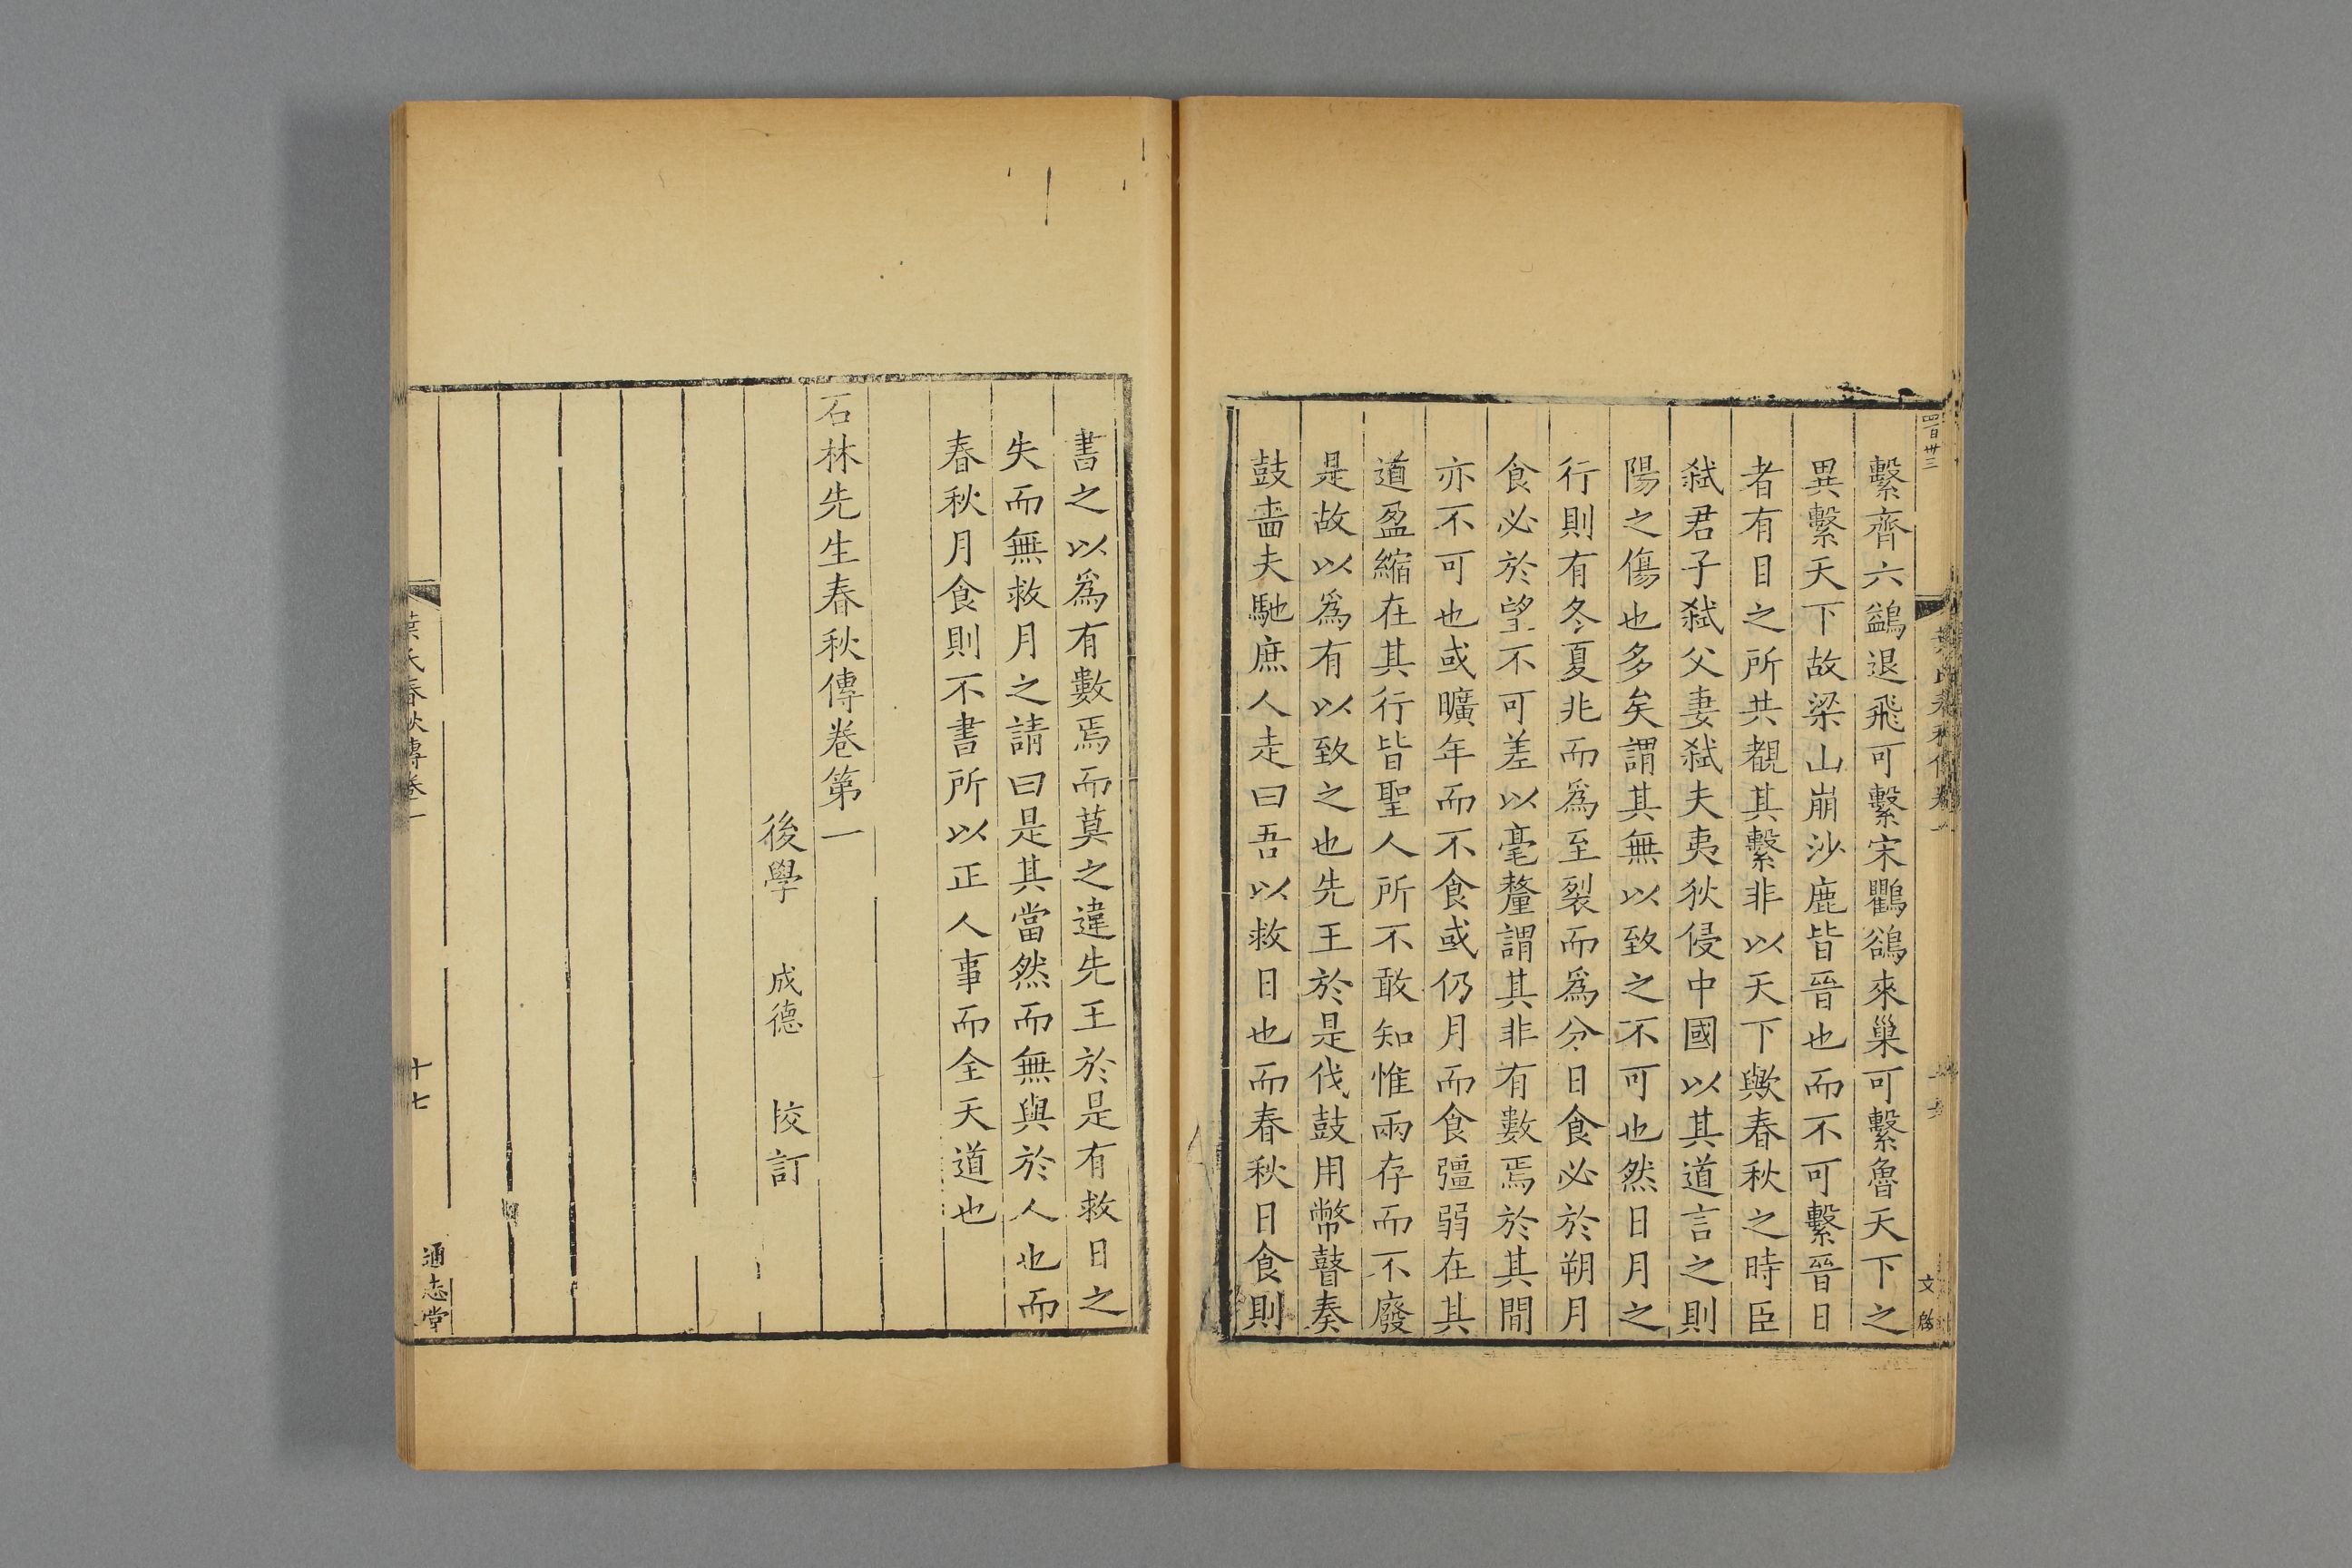 四百卅三
文
繫齊六鷁退飛可繫宋鸜鵒來巢可繫魯天下之
異繫天下故梁山崩沙鹿皆晉也而不可繫晉日
者有目之所共覩其繫非以天下歟春秋之時臣
弑君子弑父妻弑夫夷狄侵中國以其道言之則
陽之傷也多矣謂其無以致之不可也然日月之
行則有冬夏兆而爲至裂而爲分日食必於朔月
食必於望不可差以毫釐謂其非有數焉於其間
亦不可也或曠年而不食或仍月而食彊弱在其
道盈縮在其行皆聖人所不敢知惟兩存而不廢
是故以爲有以致之也先王於是伐鼓用幣瞽奏
鼓嗇夫馳庶人走曰吾以救日也而春秋日食則
書之以爲有數焉而莫之違先王於是有救日之
失而無救月之請曰是其當然而無與於人也而
春秋月食則不書所以正人事而全天道也
石林先生春秋傳卷第一
後學 成德 挍訂
葉氏春秋傳卷一
十七
通志堂